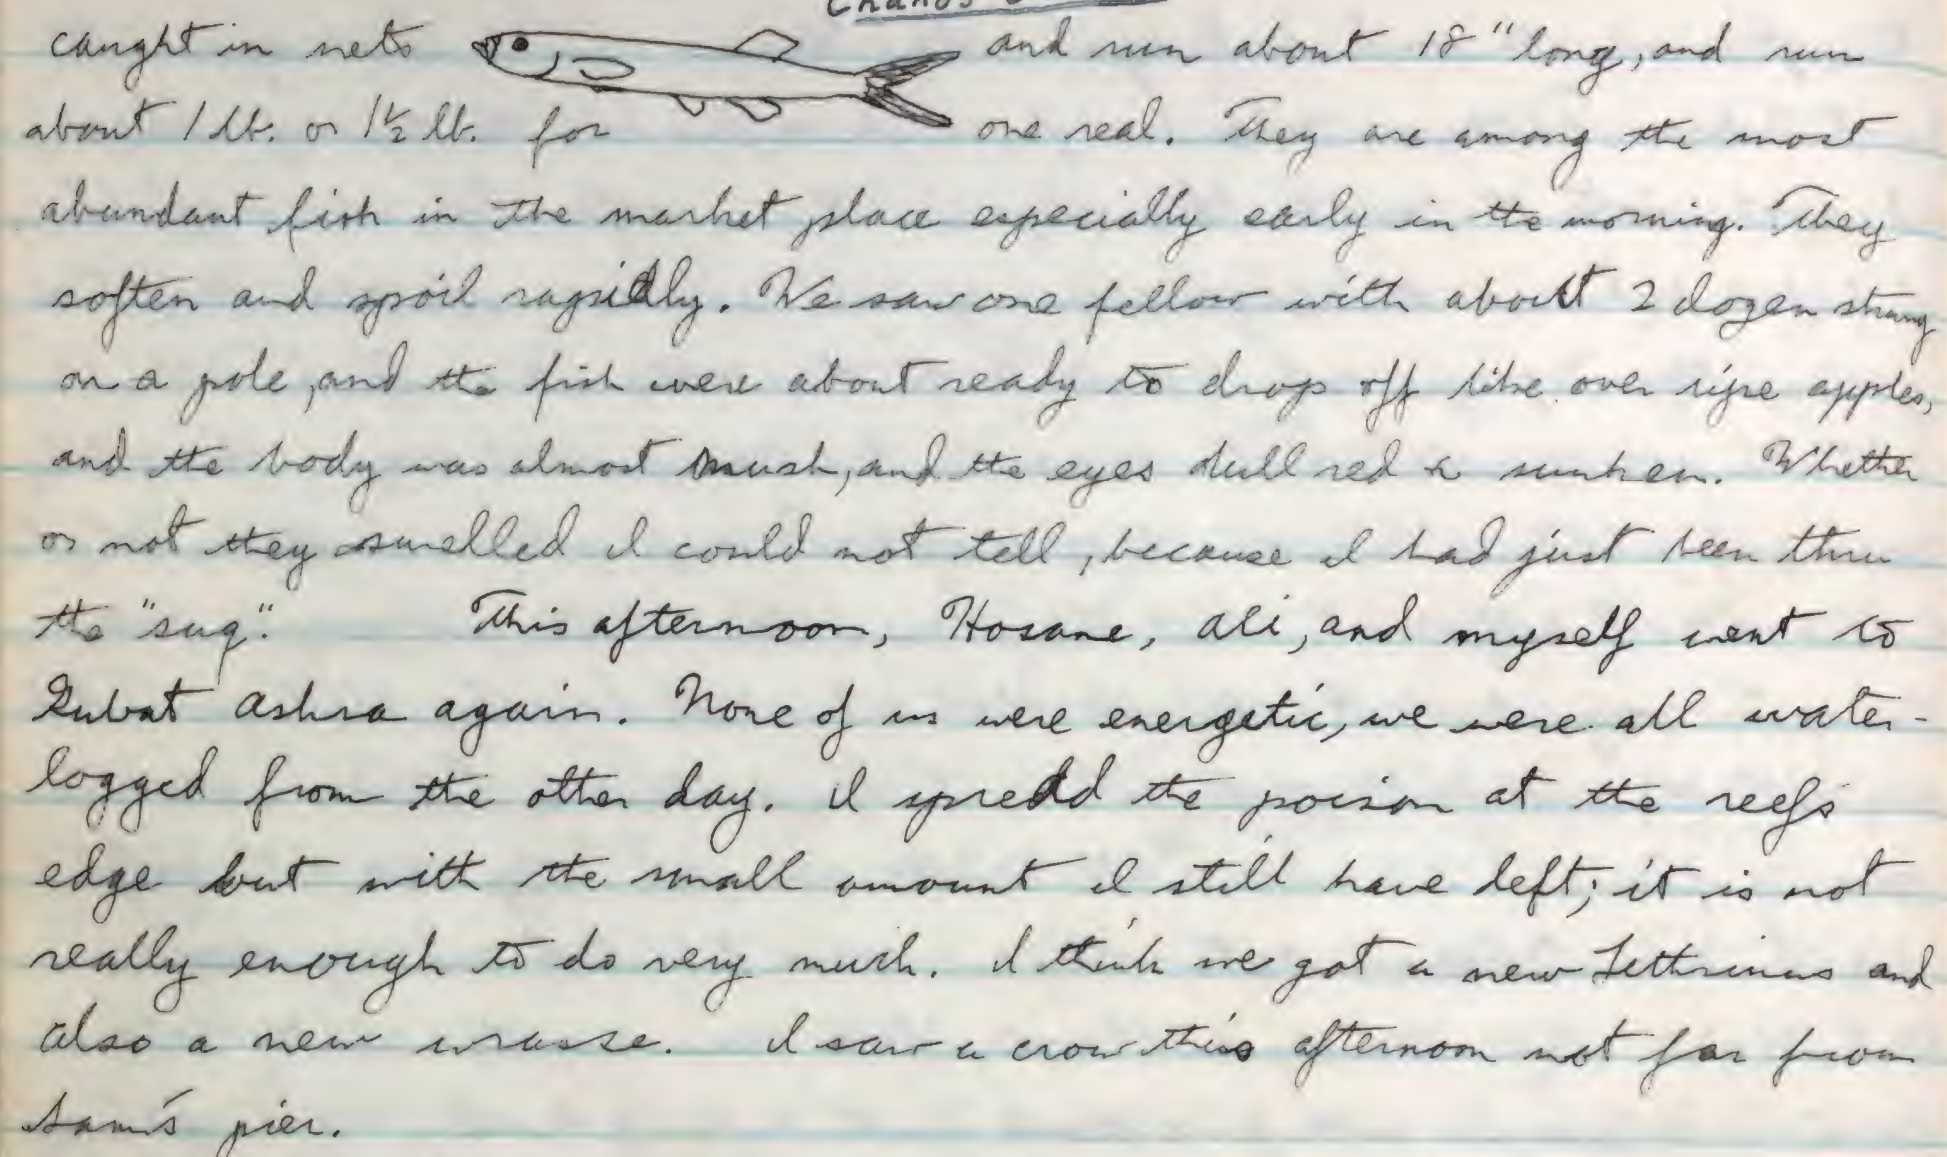 Chanos
caught in nets and run about 18" long, and run
about 1 lb. or 1½ lb. for one real. They are among the most
abundant fish in the market place especially early in the morning. They
soften and spoil rapidly. We saw one fellow with about 2 dozen strung
on a pole, and the fish were about ready to drop off like over ripe apples,
and the body was almost mush, and the eyes dull red & sunken. Whether
or not they smelled I could not tell, because I had just been thru
the "suq". This afternoon, Hosane, Ali, and myself went to
Gubat Ashra again. None of us were energetic, we were all water-
logged from the other day. I spread the poison at the reefs
edge but with the small amount I still have left; it is not
really enough to do very much. I think we got a new Lethrinus and
also a new wrasse. I saw a crow this afternoon not far from
Sam's pier.